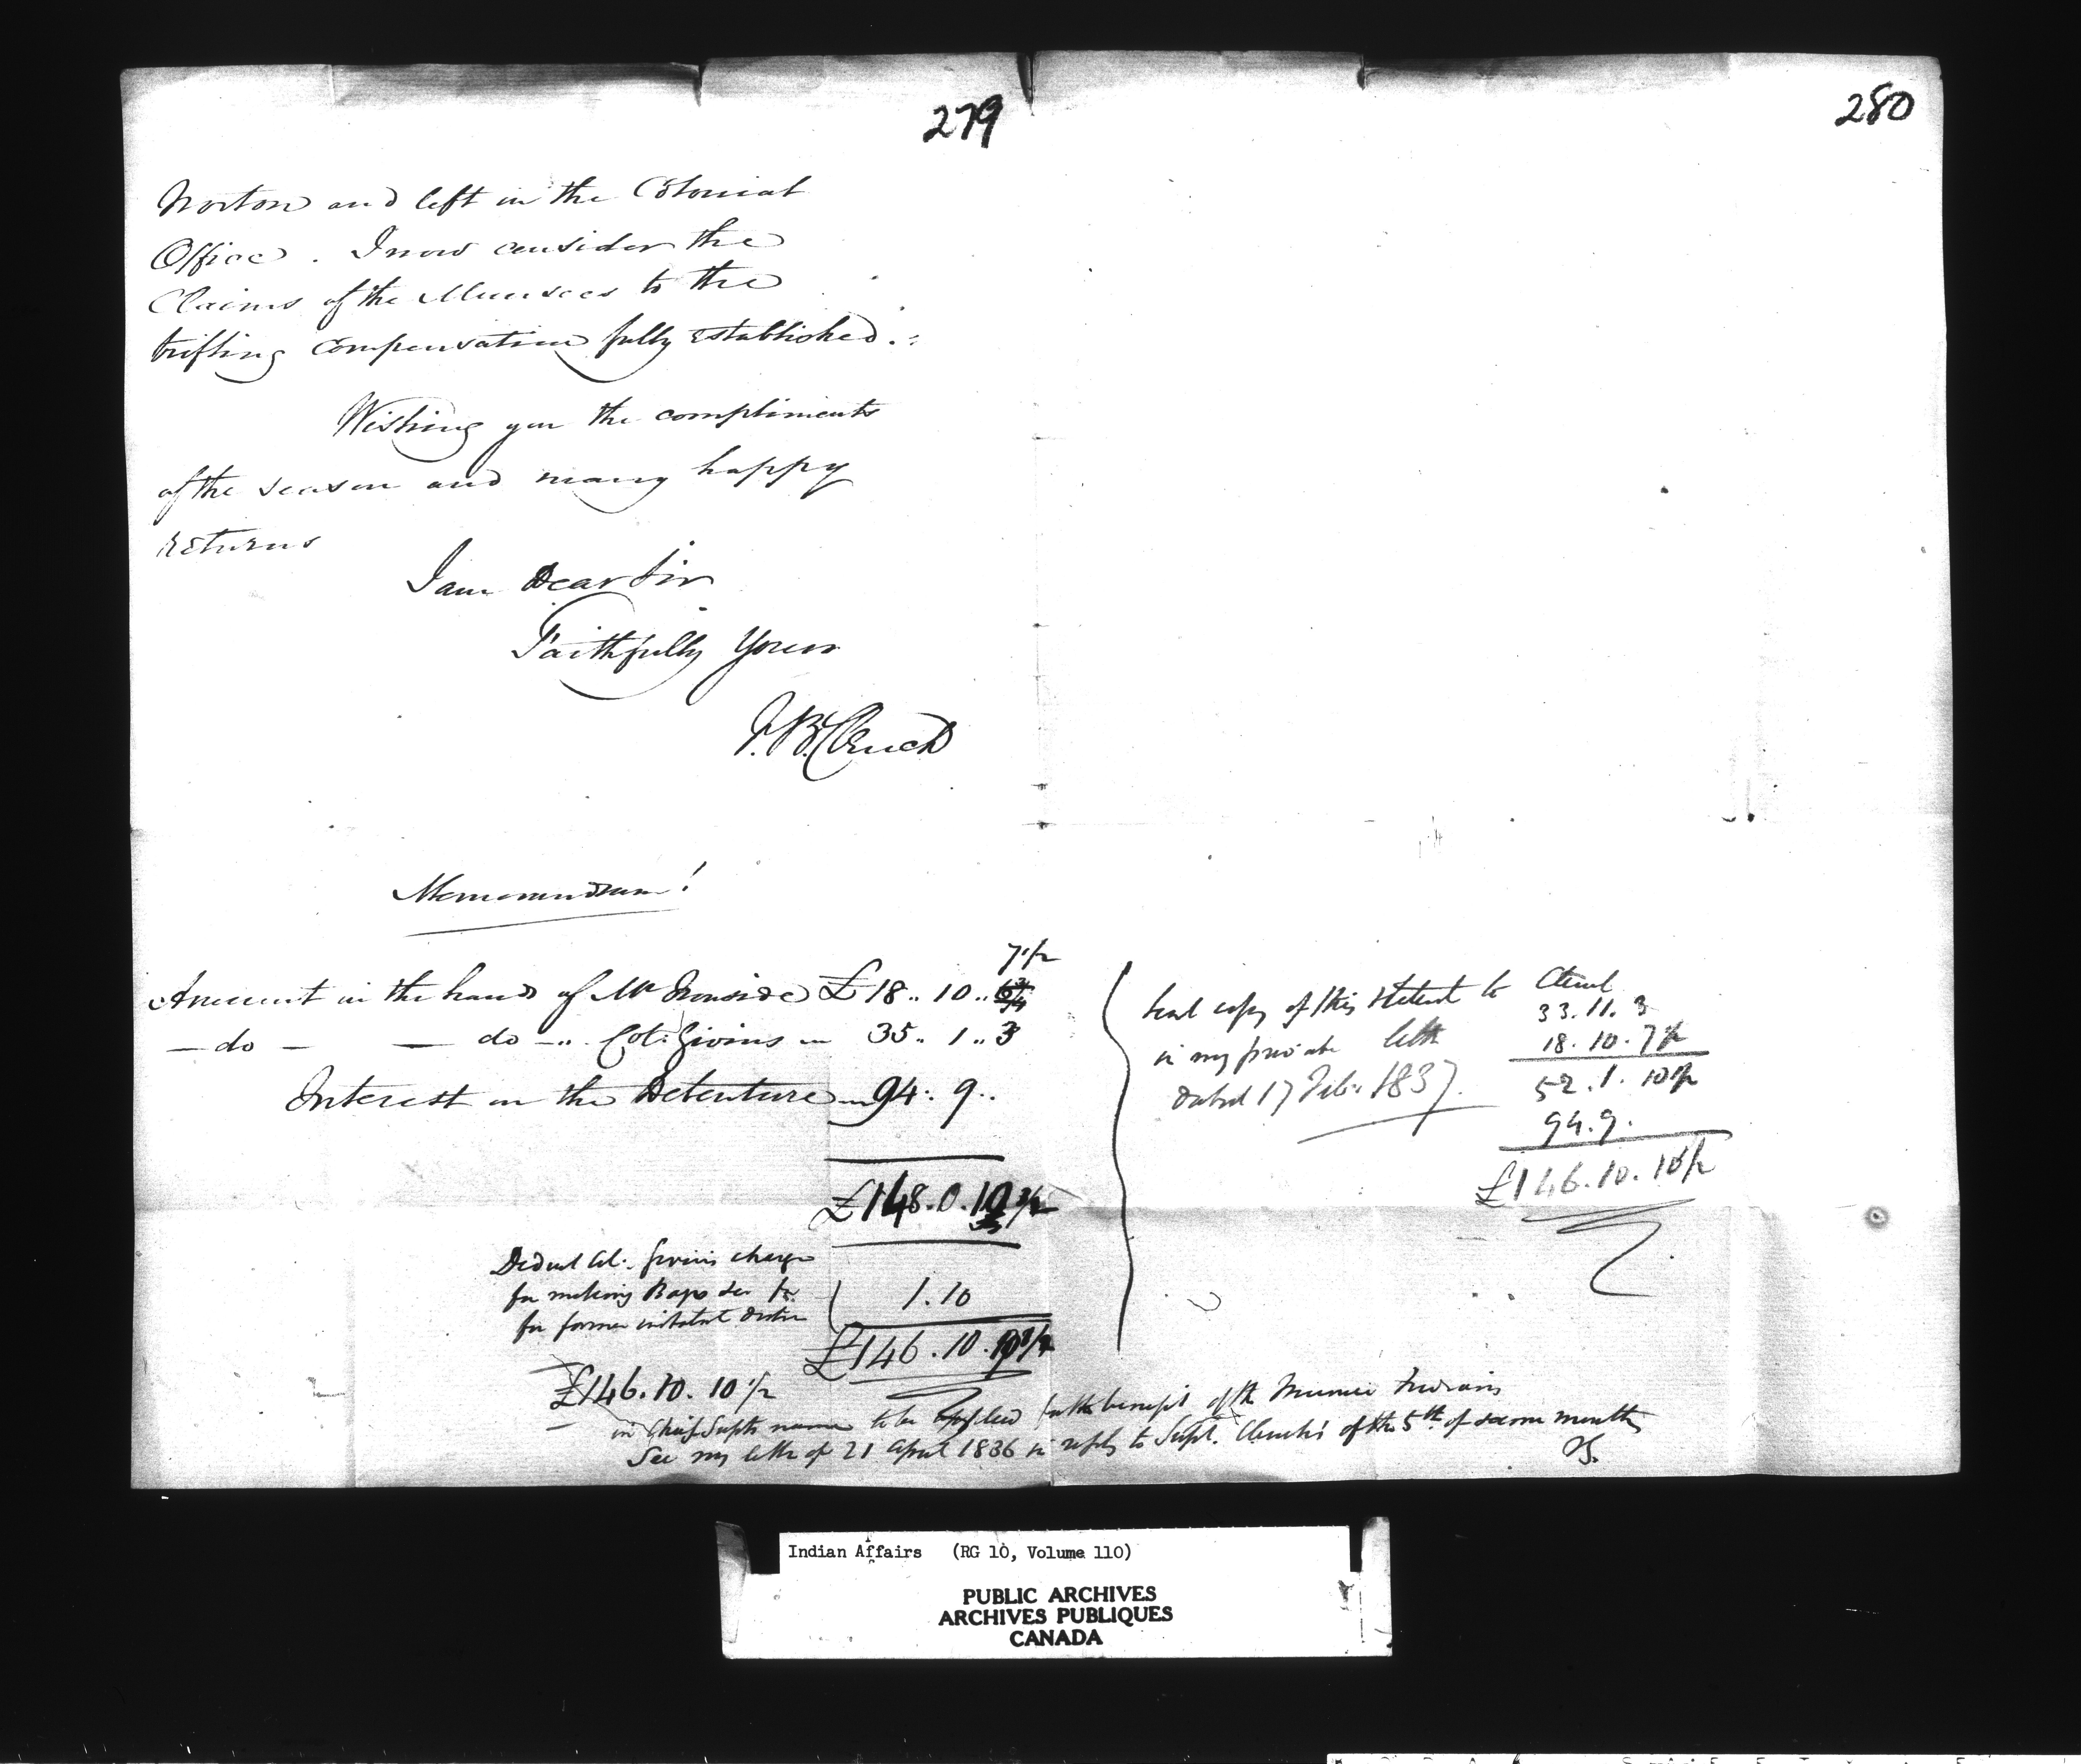 279
280
Norton and left in the Colonial
Office. I now consider the
Claims of the Munsees to the
trifling compensation fully established.
Wishing you the compliments
of the season and many happy
returns
I am Dear Sir
Faithfully Yours
J. B. Clench
Memorandum!
7 1/2
Amount in the hands of Mr Ironside £18 .. 10 .. 6 3/4
— do — — do — .. Col: Givins .. 35 .. 1 .. 3
Interest on the Debenture .. 94 : 9 ..
£148 . 0 . 10 1/2
Deduct Col. Givins charge
for making
for former
1.10
£146 . 10 . 10 1/2
£146 . 10 . 10 1/2
in Chief Supts name to be applied for the benefit of the Munsee Indians
See my letter of 21 April 1836 in reply to Supt. Clench's of the 5th of same month
Send copy of this statement to Clench
in my private letter
dated 17 Feb. 1837.
33 . 11 . 3
18 . 10 . 7 1/2
52 . 1 . 10 1/2
94 . 9 .
£146 . 10 . 10 1/2
Indian Affairs (RG 10, Volume 110)
PUBLIC ARCHIVES
ARCHIVES PUBLIQUES
CANADA